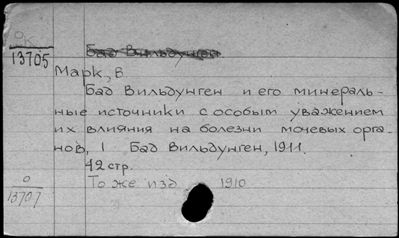 РК
13705
Бад Вильдунген
Марк, В.
Бад Вильдунген и его минераль-
ные источники с особым уважением
их влияния на болезни мочевых орга-
нов, 1 Бад Вильдунген, 1911.
42 стр.
То же изд 1910
0
13707